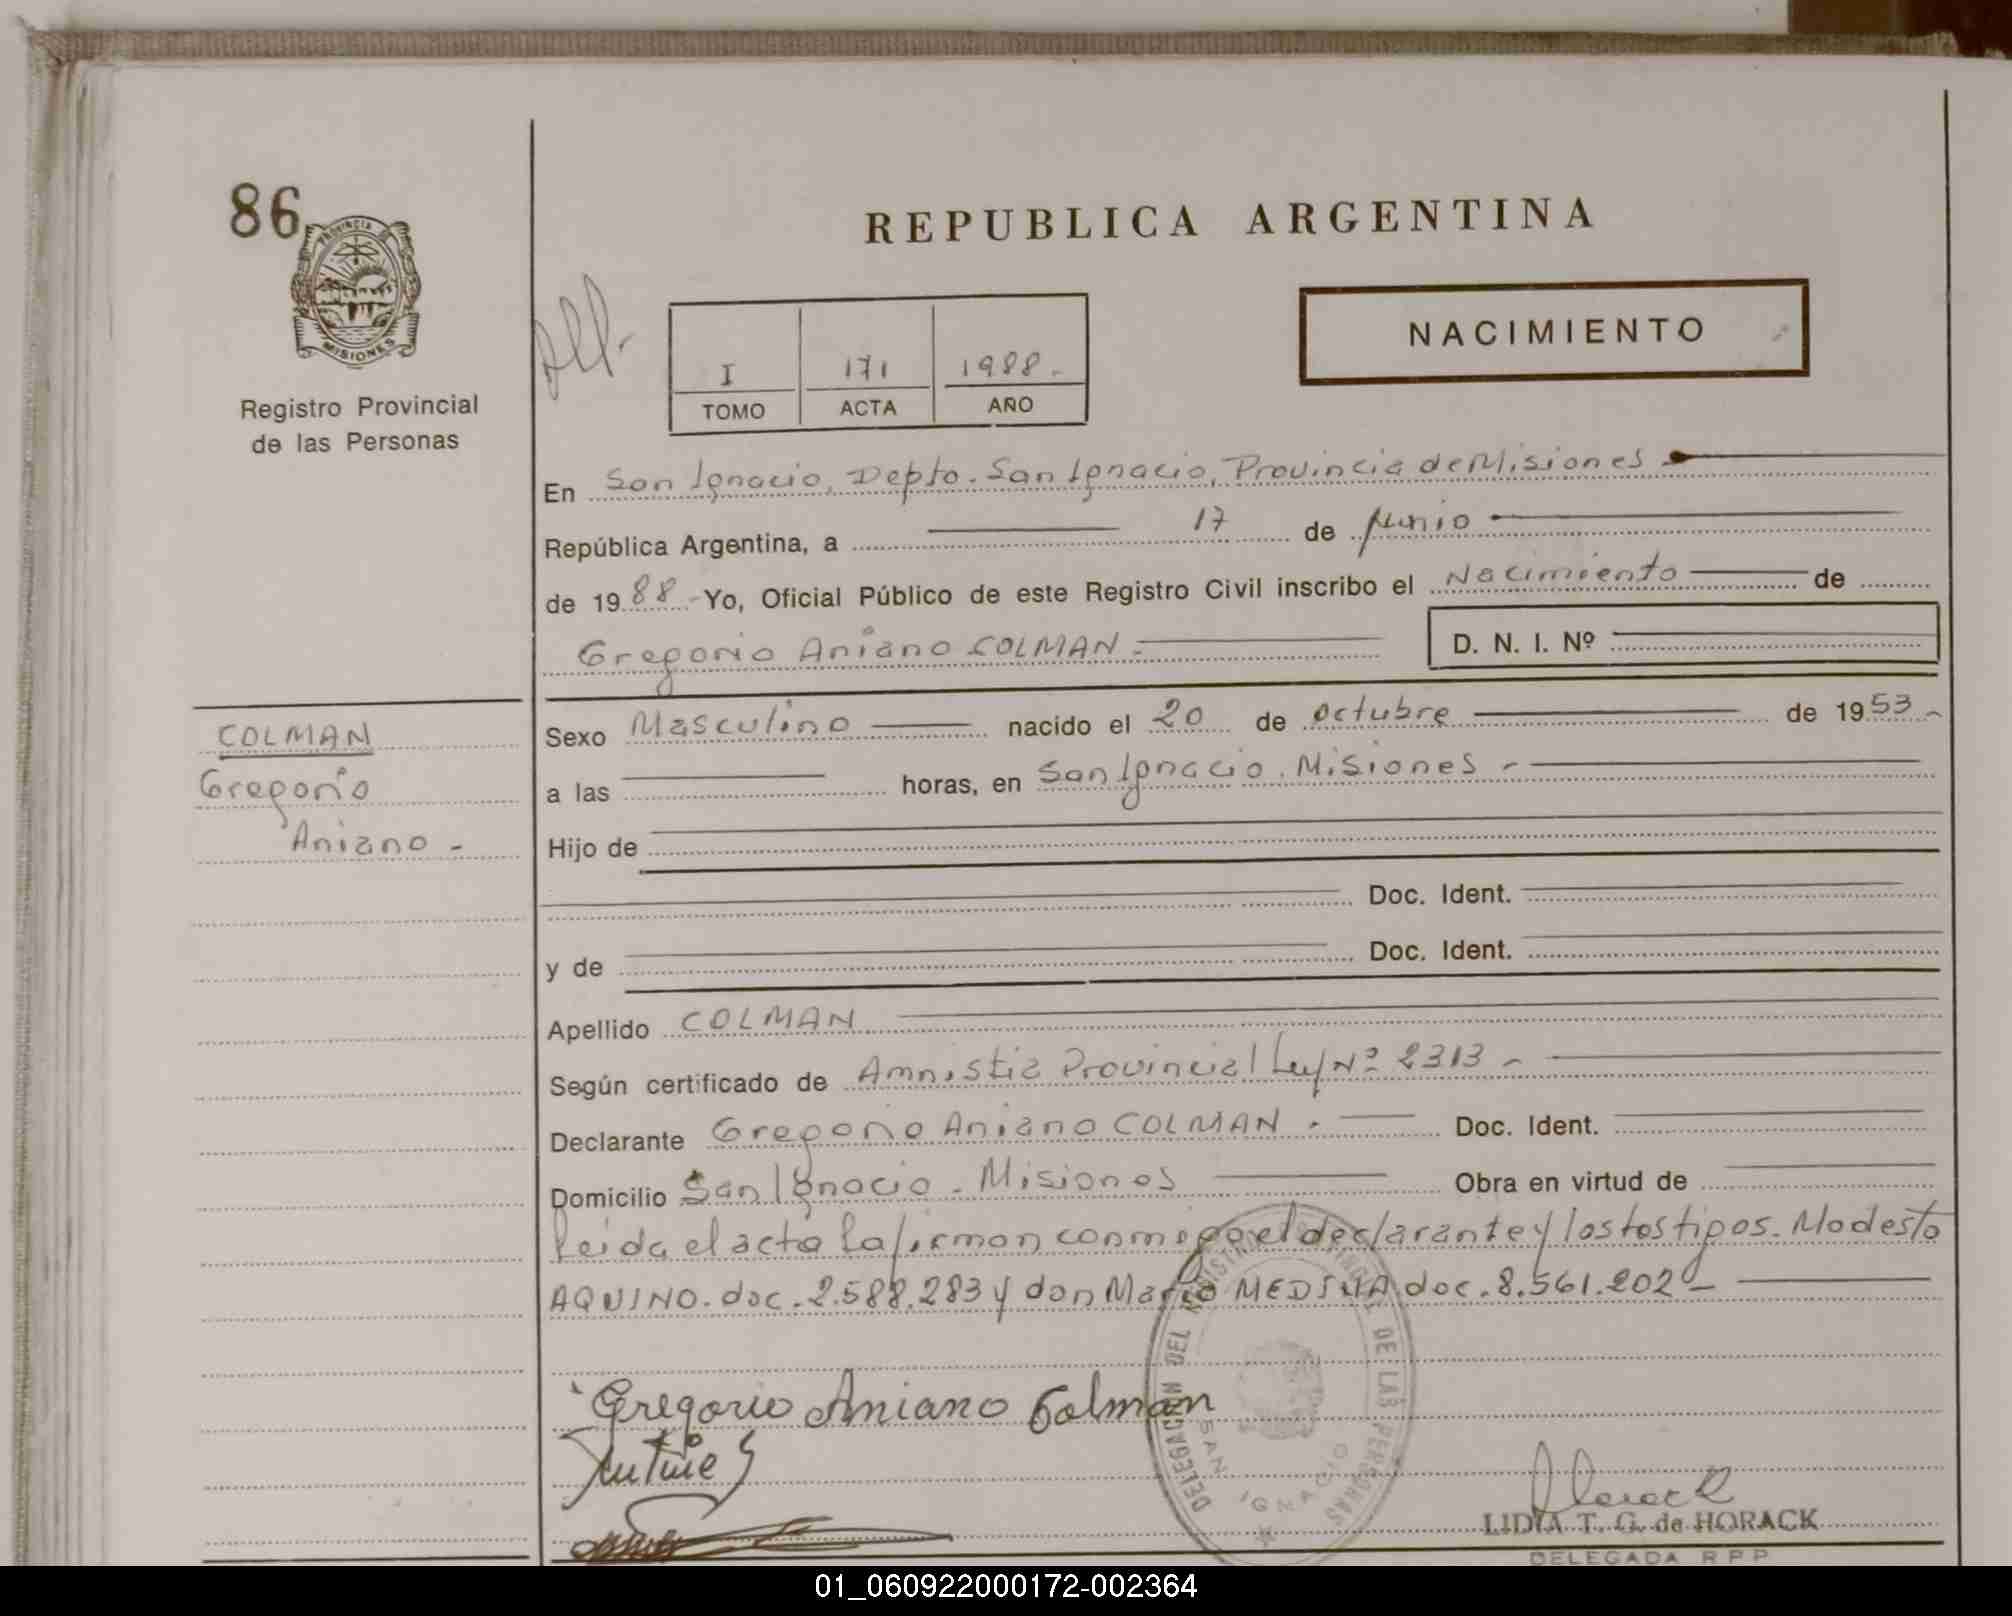 86
PROVINCIA DE
MISIONES
Registro Provincial
de las Personas
REPUBLICA ARGENTINA
NACIMIENTO
I 171 1988.-
TOMO ACTA AÑO
En San Ignacio, Depto. San Ignacio, Provincia de Misiones
República Argentina, a 17 de junio
de 1988.- Yo, Oficial Público de este Registro Civil inscribo el Nacimiento de
Gregorio Aniano COLMAN.- D. N. I. Nº
COLMAN
Gregorio
Aniano -
Sexo Masculino nacido el 20 de octubre de 1953.-
a las horas, en San Ignacio. Misiones.-
Hijo de
Doc. Ident.
y de Doc. Ident.
Apellido COLMAN
Según certificado de Amnistia Provincial Ley Nº 2313.-
Declarante Gregorio Aniano COLMAN.- Doc. Ident.
Domicilio San Ignacio - Misiones Obra en virtud de
Leida el acta la firman conmigo el declarante y los testigos. Modesto
AQUINO. doc. 2.588.283 y don Mario MEDINA doc. 8.561.202.-
Gregorio Aniano Colman
DELEGACION DEL REGISTRO PROVINCIAL DE LAS PERSONAS
SAN IGNACIO
LIDIA T. G. de HORACK
DELEGADA R P P
01_060922000172-002364